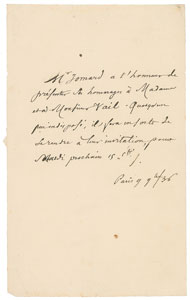 Mr Jomard a l'honneur de
présenter ses hommages à Madame
et à Monsieur Vail. Quoique
peu indisposé, il fera en sorte de
se rendre à leur invitation pour
Mardi prochain 15
Paris 9 9bre/36